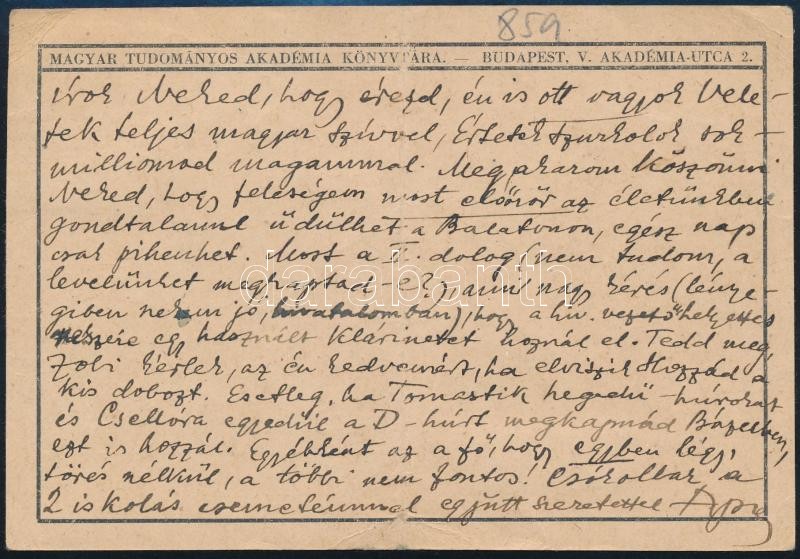 859
MAGYAR TUDOMÁNYOS AKADÉMIA KÖNYVTÁRA. — BUDAPEST, V. AKADÉMIA-UTCA 2.
írok Neked, hogy érezd, én is ott vagyok Vele-
tek teljes magyar szívvel, Értetek szurkolok sok-
milliomod magammal. Meg akarom köszönni
Neked, hogy feleségem most először az életünkben
gondtalanul üdülhet a Balatonon, egész nap
csak pihenhet. Most a II. dolog (nem tudom, a
levelünket megkaptad-e?), ami nagy kérés (lénye-
giben nekem jó, hivatalomban), hogy a hiv. vezetőhelyettes
részére egy használt klárinétot hoznál el. Tedd meg,
Zobi kérlek, az én kedvemért, ha elviszik Hozzád a
kis dobozt. Esetleg, ha Tomastik hegedű-húrokat
és Csellóra egyedül a D-húrt megkapnád Bázelben,
ezt is hozzál. Egyébként az a fő, hogy egyben légy,
törés nélkül, a többi nem fontos! Csókollak, a
2 iskolás csemetémmel együtt szeretettel
darabanth